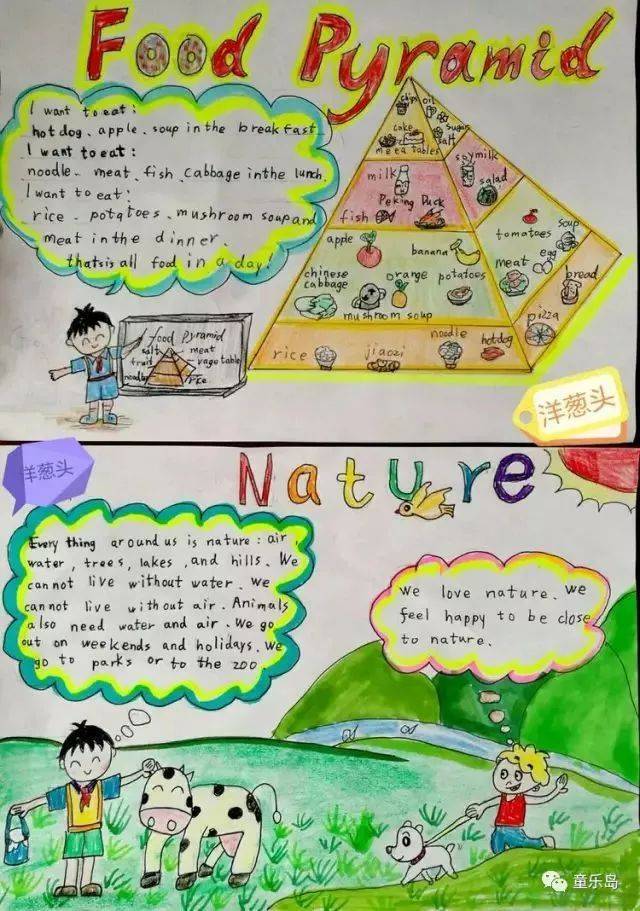 Food Pyramid
I want to eat:
hot dog、apple、soup in the breakfast.
I want to eat:
noodle、meat、fish、cabbage in the lunch.
I want to eat:
rice、potatoes、mushroom soup and
meat in the dinner.
thatsis all food in a day!
chips oil
cake sugar
salt
milk soymilk
Peking Duck salad
fish
apple tomatoes soup
banana egg
meat
chinese
cabbage orange potatoes bread
mushroom soup
pizza
rice jiaozi noodle hotdog
food Pyramid
salt meat
fruit vagetable
noodle rice
洋葱头
洋葱头
Nature
Every thing around us is nature: air,
water, trees, lakes, and hills. We
can not live without water. we
can not live without air. Animals
also need water and air. We go
out on weekends and holidays. we
go to parks or to the zoo
we love nature. we
feel happy to be close
to nature.
童乐岛